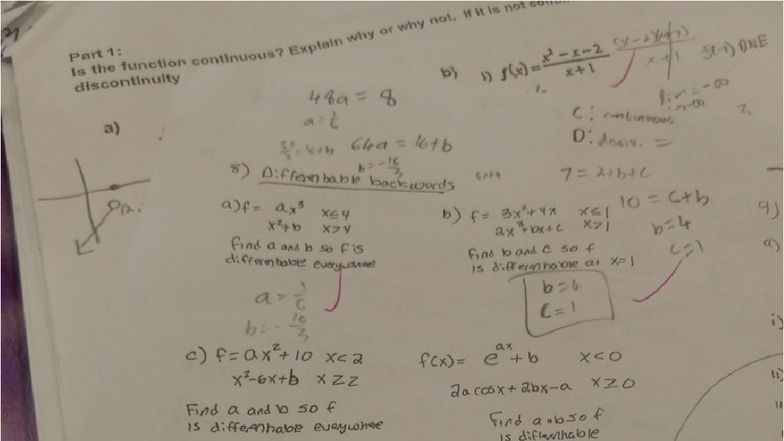 Part 1:
Is the function continuous? Explain why or why not. If it is not
discontinuity
a)
b) i) f(x) = x² - x - 2 / x + 1
(x-2)(x+1) / x+1
f(-1) DNE
48a = 8
a = 1/6
64a = 16+b
b = -16/3
C: continuous
D: deriv. =
7 = 2+b+c
10 = c+b
b=4
c=1
8) Differentiable backwords
a) f = ax³ x≤4
x²+b x>4
Find a and b so f is
differentiable everywhere
a = 1/6
b = -16/3
b) f = 3x²+4x x≤1
2x³+bx+c x>1
Find b and c so f
is differentiable at x=1
b=4
c=1
c) f = ax²+10 x<2
x²-6x+b x≥2
Find a and b so f
is differentiable everywhere
f(x) = e^ax + b x<0
2a cosx + 2bx - a x≥0
Find a & b so f
is differentiable
9)
a)
i)
ii)